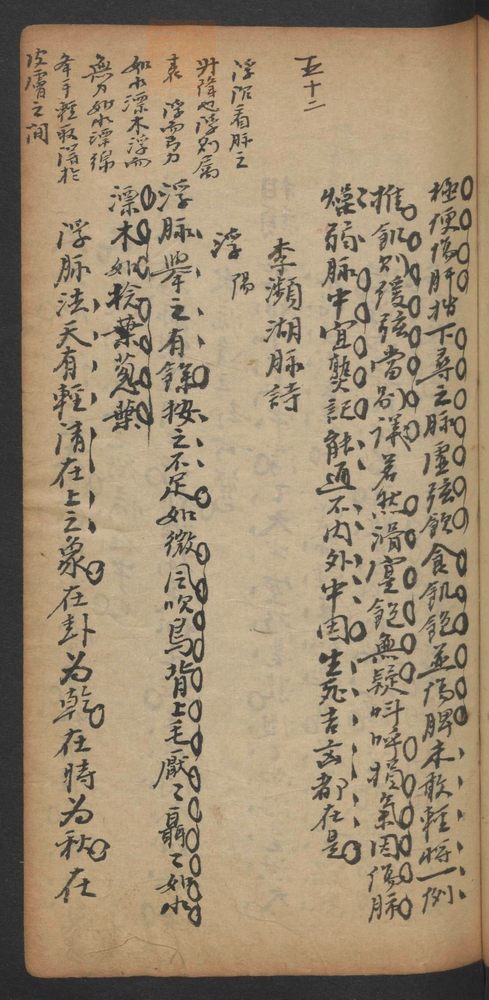 五十二
極便傷肝指下尋之脉虛弦飲食飢飽並傷脾未敢輕將一例
推飢則緩弦當別議若然滑實飽無疑叫呼損氣因傷脉
燥弱脉中宜熟記能通不內外中因生死吉凶都在是
李瀕湖脉詩
浮陽
浮脉舉之有餘按之不足如微風吹鳥背上毛厭々聶々如水
漂木如捻葱葉
浮脉法天有輕清在上之象在卦為乾在時為秋在
浮沉看脉之
升降也浮則属
表浮而有力
如水漂木浮而
無力如水漂綿
舉手輕取得於
皮膚之間